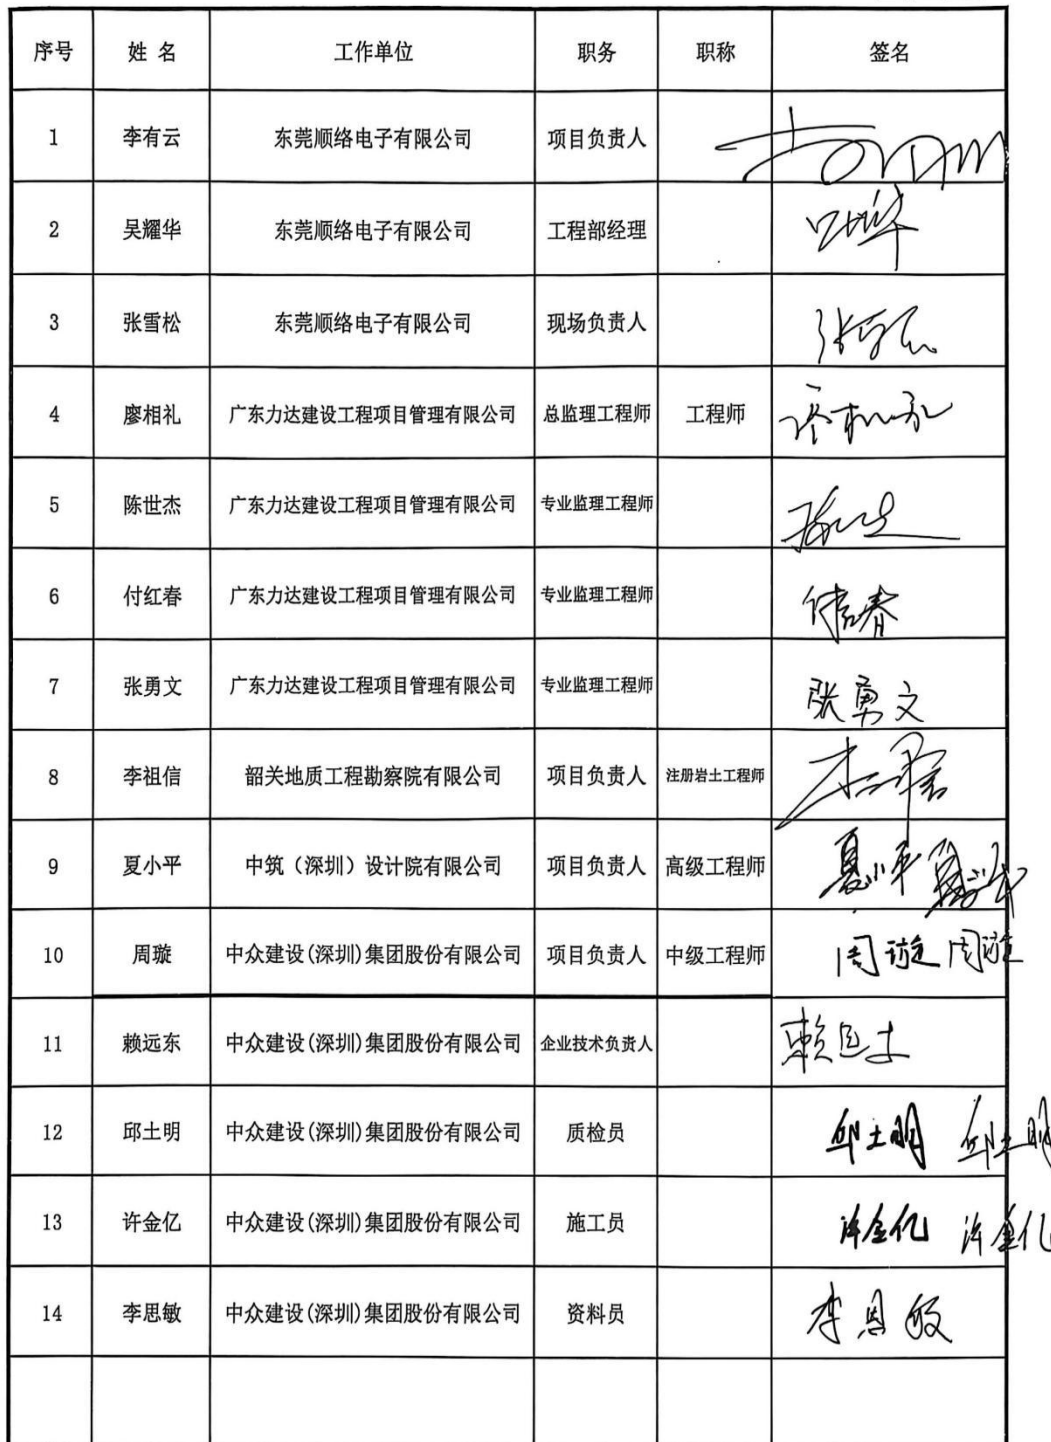 序号 姓 名 工作单位 职务 职称 签名
1 李有云 东莞顺络电子有限公司 项目负责人
2 吴耀华 东莞顺络电子有限公司 工程部经理
3 张雪松 东莞顺络电子有限公司 现场负责人
4 廖相礼 广东力达建设工程项目管理有限公司 总监理工程师 工程师
5 陈世杰 广东力达建设工程项目管理有限公司 专业监理工程师
6 付红春 广东力达建设工程项目管理有限公司 专业监理工程师
7 张勇文 广东力达建设工程项目管理有限公司 专业监理工程师 张勇文
8 李祖信 韶关地质工程勘察院有限公司 项目负责人 注册岩土工程师
9 夏小平 中筑（深圳）设计院有限公司 项目负责人 高级工程师 夏小平
10 周璇 中众建设(深圳)集团股份有限公司 项目负责人 中级工程师 周璇 周璇
11 赖远东 中众建设(深圳)集团股份有限公司 企业技术负责人
12 邱土明 中众建设(深圳)集团股份有限公司 质检员 邱土明 邱土明
13 许金亿 中众建设(深圳)集团股份有限公司 施工员 许金亿 许金亿
14 李思敏 中众建设(深圳)集团股份有限公司 资料员 李思敏